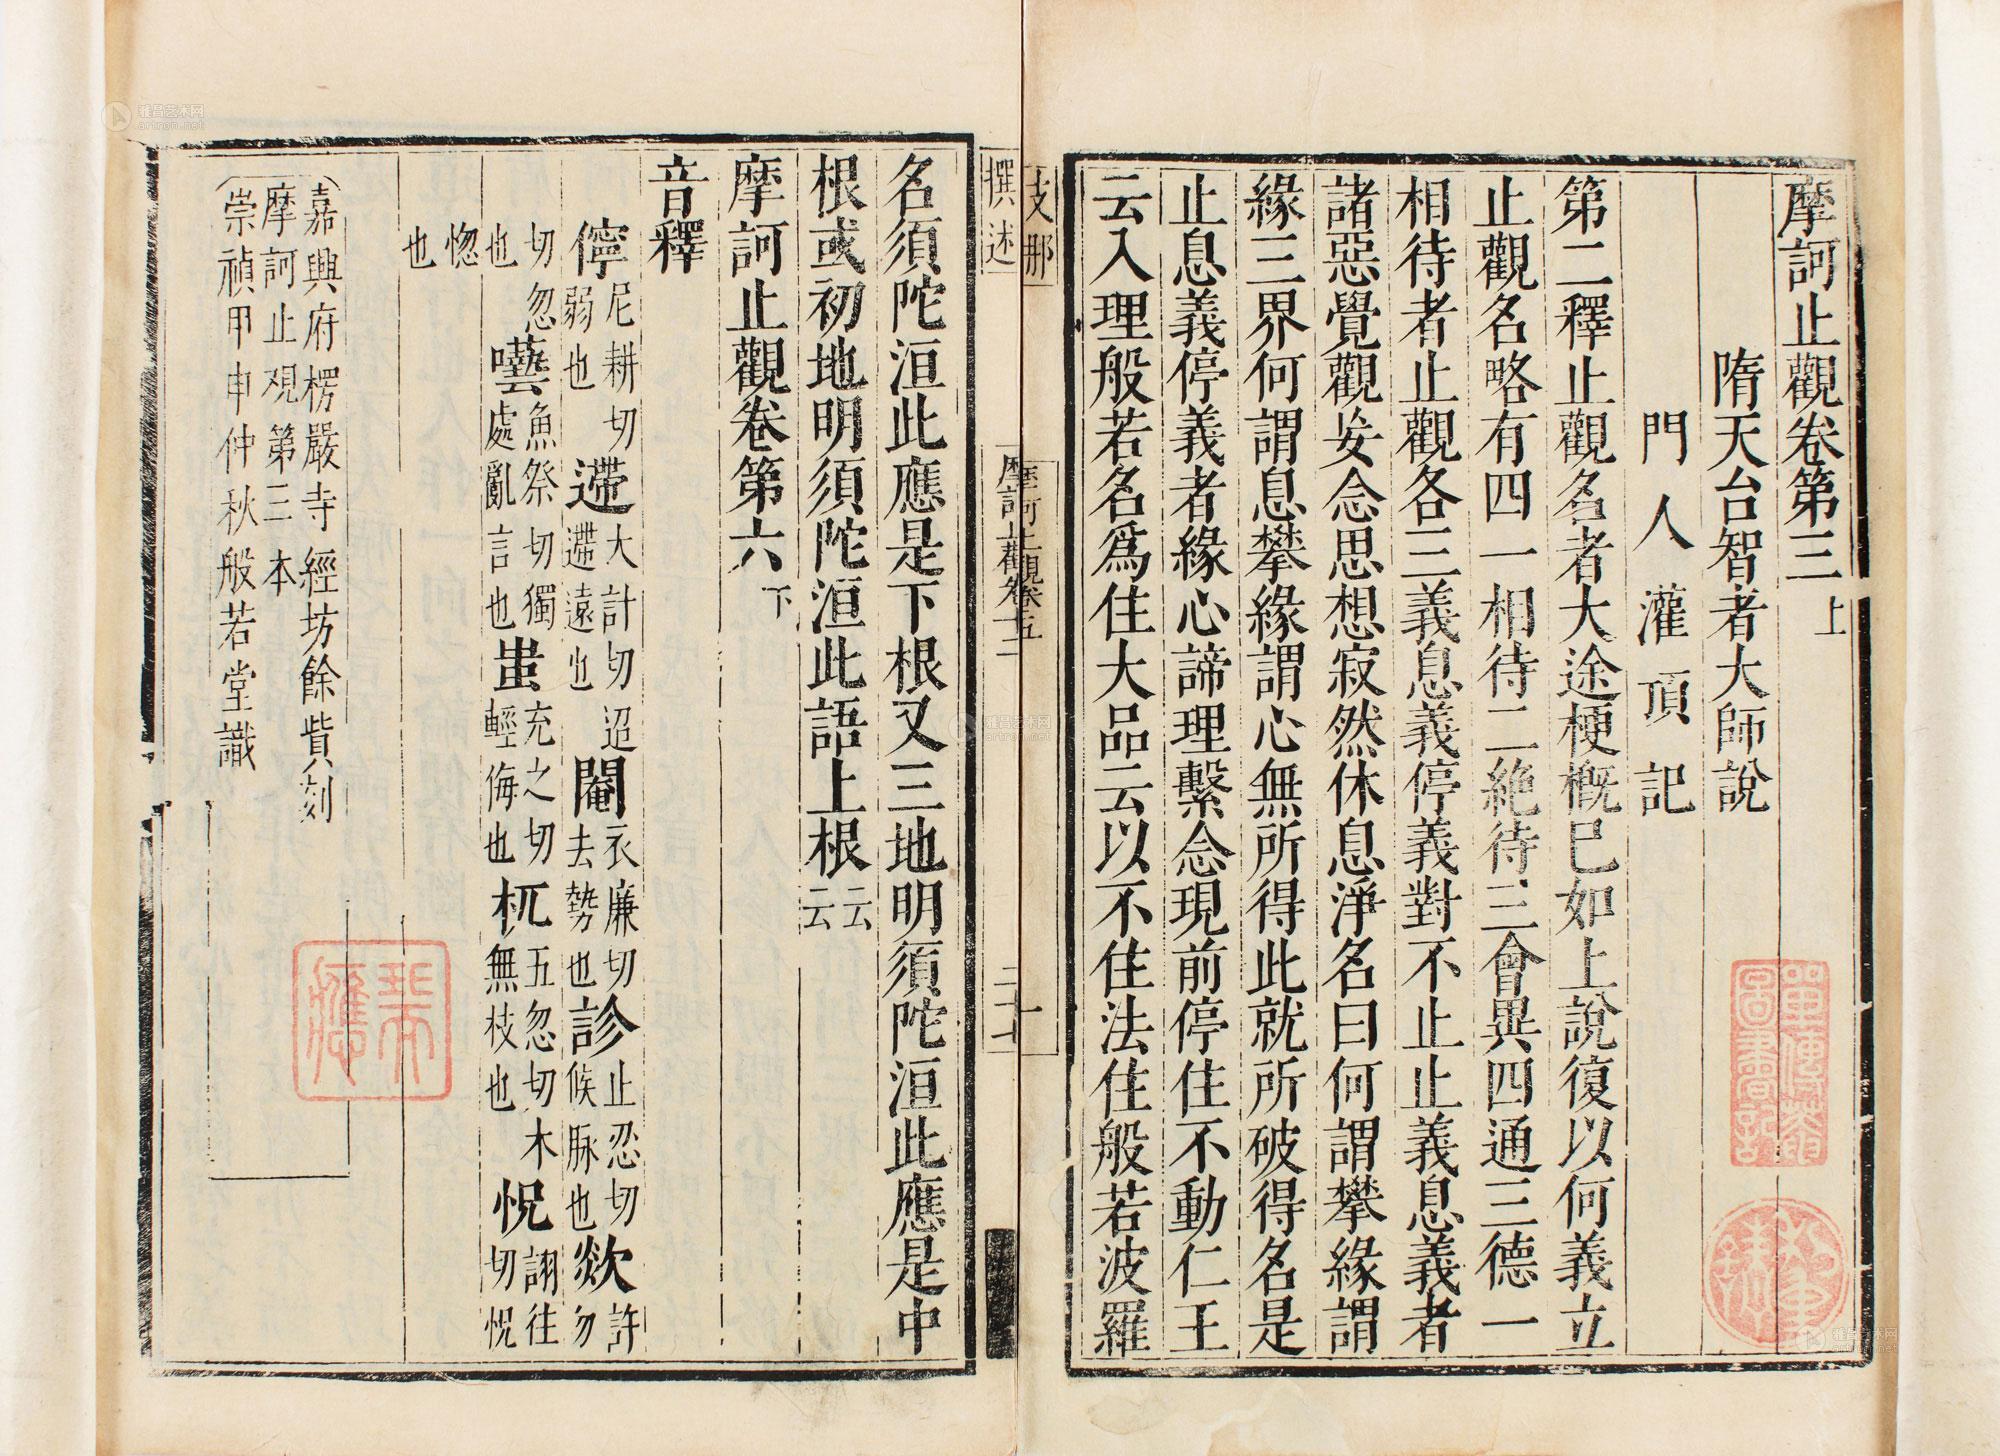 摩訶止觀卷第三上
隋天台智者大師說
門人灌頂記
第二釋止觀名者大途梗概已如上說復以何義立
止觀名略有四一相待二絶待三會異四通三德一
相待者止觀各三義息義停義對不止止義息義者
諸惡覺觀妄念思想寂然休息淨名曰何謂攀緣謂
緣三界何謂息攀緣謂心無所得此就所破得名是
止息義停義者緣心諦理繫念現前停住不動仁王
云入理般若名爲住大品云以不住法住般若波羅
支那
撰述
摩訶止觀卷
一
二十七
名須陀洹此應是下根又三地明須陀洹此應是中
根或初地明須陀洹此語上根云云
摩訶止觀卷第六下
音釋
儜尼耕切弱也遰大計切迢遰遠也閹衣廉切去勢也診止忍切候脉也欻許勿
切忽也囈魚祭切獨處亂言也蚩充之切輕侮也杌五忽切木無枝也怳詡往切怳
惚也
嘉興府楞嚴寺經坊餘貲刻
摩訶止观第三本
崇禎甲申仲秋般若堂識
雅昌艺术网
artron.net
雅昌艺术网
artron.net
雅昌艺术网
artron.net